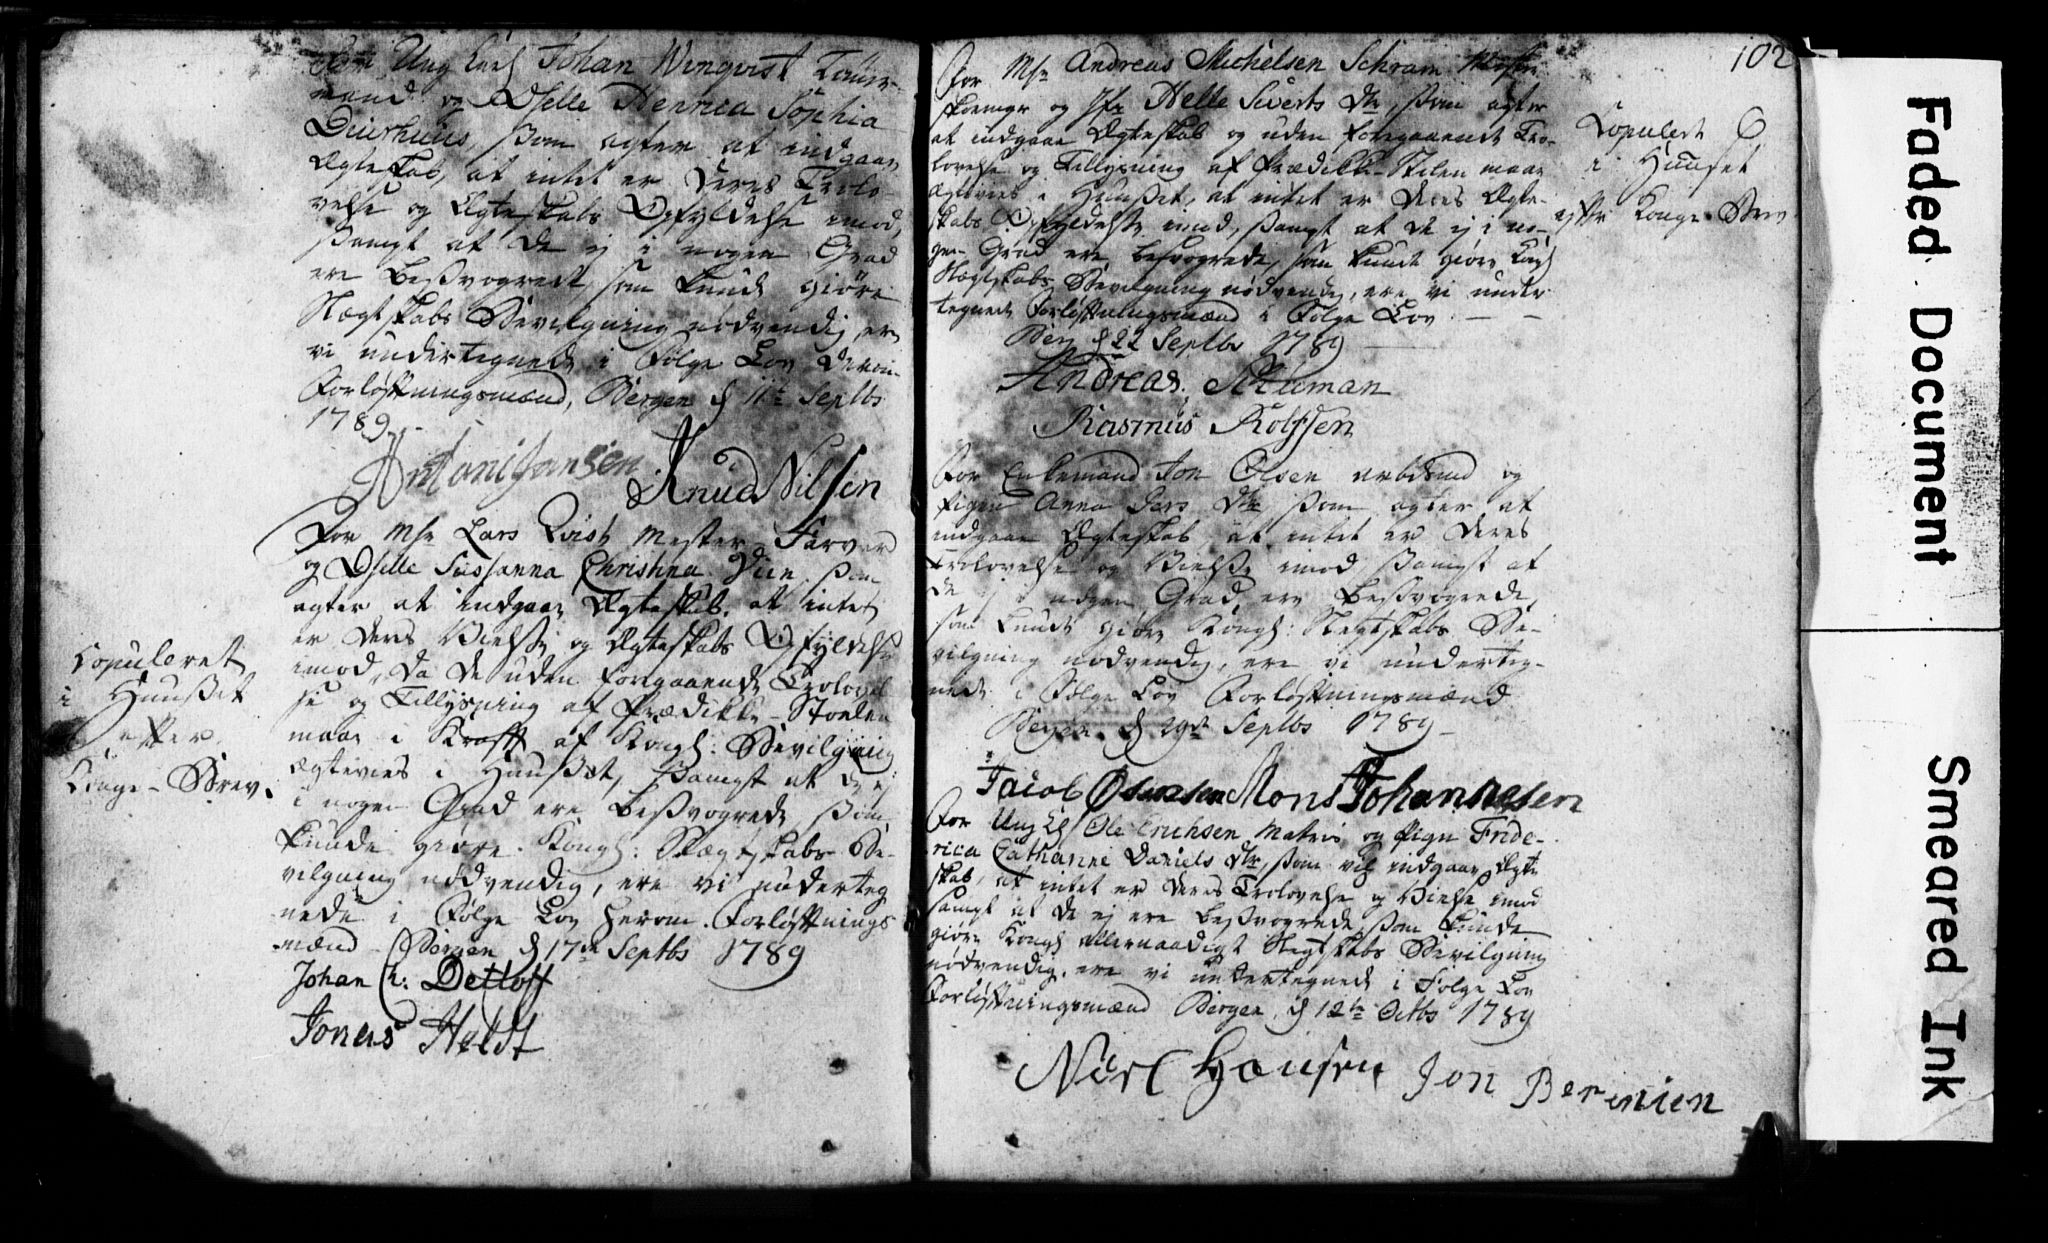 For Ung Karl Johan Winqvist Tauer-
mand og Dselle Henrica Sophia
Duerhuus, som agter at indgaae
Ægteskab, at intet er deres Trolo-
velse og Ægteskabs Opfyldelse imod,
sampt at de ej i nogen Grad
ere besvogrede, som kunde giøre
Slægtskabs Bevilgning nødvendig, ere
vi undertegnede i Følge Lov derom
Forløftningsmænd, Bergen d 11te Septbr
1789
Antoni Jansen
Knud Nilsen
For Msr Lars Qvist Mester Farver
og Dselle Sussanna Christina som
agter at indgaae Ægteskab, at intet
er deres Vielse og Ægteskabs Opfyldelse
imod, da de uden foregaaende Trolovel-
se og Tillysning af Prædicke-Stoelen
maae i Krafft af Kongl: Bevilgning
Ægtevies i Huuset, sampt at de ej
i nogen Grad ere besvogrede, som
kunde giøre Kongl: Slægtskabs Be-
vilgning nødvendig, ere vi underteg
nede i Følge Lov herom Forløftnings
mænd Bergen d 17de Septbr 1789
Johan Ch: Detloff
Jonas Heldt
Copuleret
i Huuset
efter
Konge-Brev.
102
For Msr Andreas Michelsen Schram Mester
og Jfr Helle Siverts dtr, som agter
at indgaae Ægteskab og uden foregaaende Tro-
lovelse og Tillysning af Prædicke-Stolen maae
Ægtevies i Huuset, at intet er deres Ægte-
skabs Opfyldelse imod, sampt at de ej i no-
gen Grad ere besvogrede, som kunde giøre Kongl
Slægtskabs Bevilgning nødvendig, ere vi under
tegnede Forløftningsmænd i Følge Lov
Berg d 22 Septbr 1789
Andreas Neuman
Rasmus Rolfsen
Copulert
i Huuset
efter Konge Brev
For Enkemand Jon Olsen arbdsmd og
Pigen Anna Pers dtr som agter at
indgaae Ægteskab, at intet er deres
Trolovelse og Vielse imod, sampt at
de ej i nogen Grad ere besvogrede,
som kunde giøre Kongl: Slegtskabs Be-
vilgning nødvendig, ere vi underteg-
nede i Følge Lov Forløftningsmænd
Bergen d 29de Septbr 1789
Jacob Mons Johannesen
For Ung Kl Ole Erichsen Matros og Pigen Fride-
rica Catharine Daniels dtr, som vil indgaae Ægte
skab, at intet er deres Trolovelse og Vielse imod
sampt at de ej ere besvogrede, som kunde
giøre Kongl allernaadigst Slegtskabs Bevilgning
nødvendig, ere vi undertegnede i Følge Lov
Forløftningsmænd Bergen, d 12te Octbr 1789
Niel Hansen Jon
Faded Document
Smeared Ink